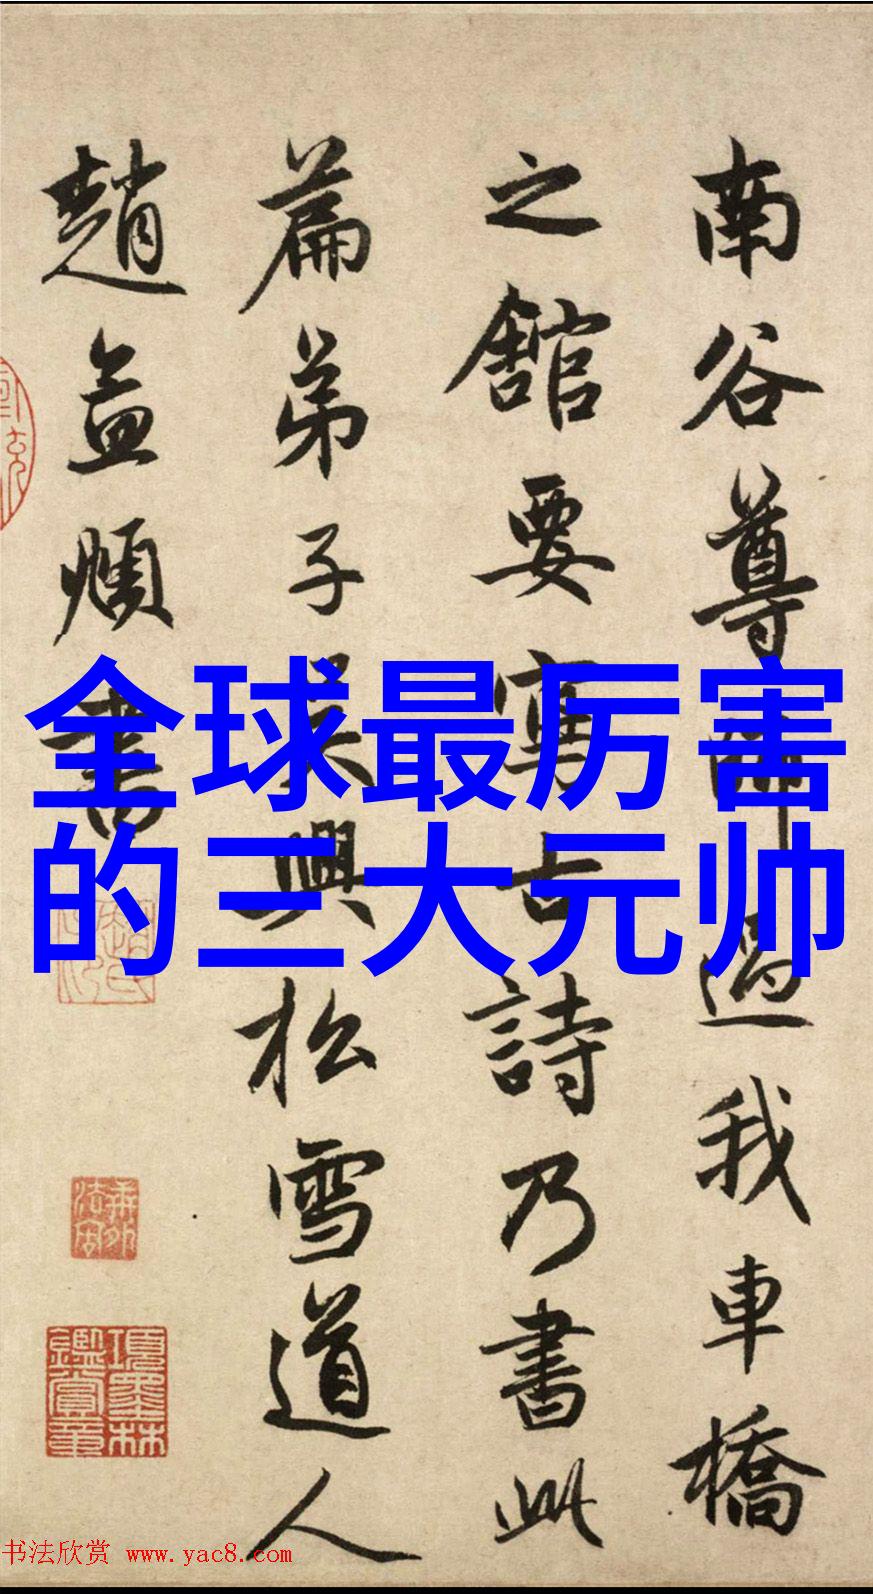 全球最厉害
的三大元帅
南谷尊師過我車橋
之館要寫古詩乃書此
篇弟子吳興松雪道人
趙孟頫書
項墨林鑑賞章
书法欣赏 www.yac8.com